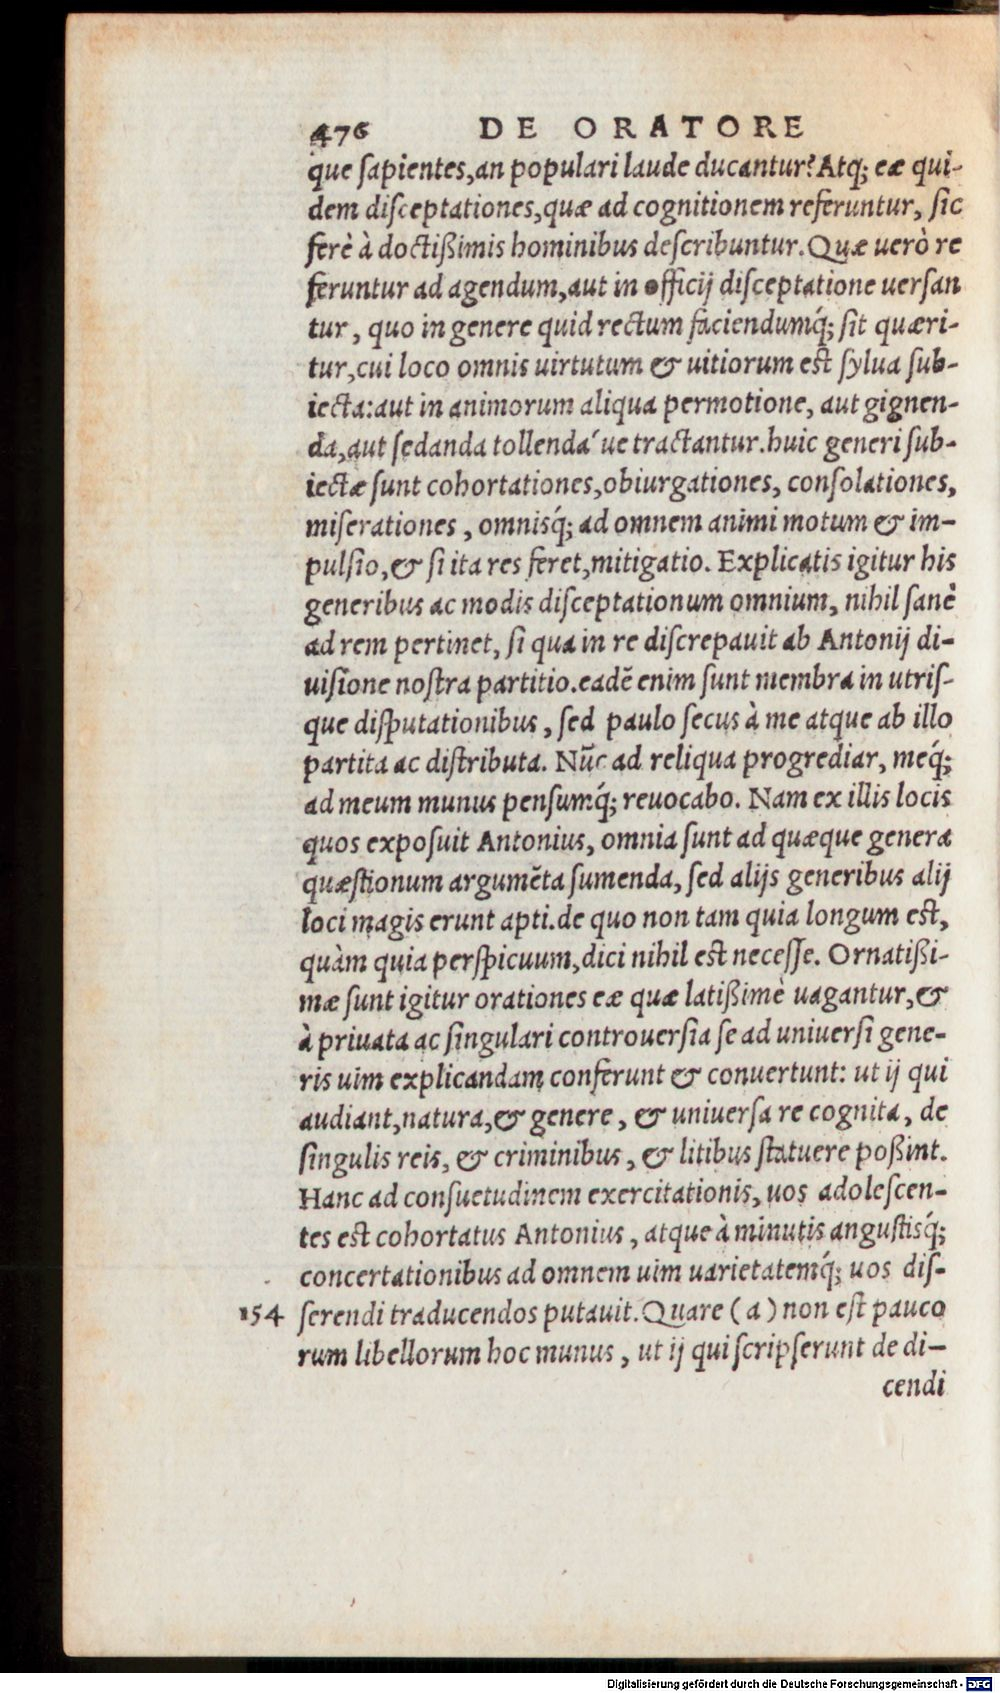 476 DE ORATORE
que ſapientes,an populari laude ducantur? Atq; eæ qui-
dem diſceptationes,quæ ad cognitionem referuntur, ſic
ferè à doctißimis hominibus deſcribuntur. Quæ uerò re
feruntur ad agendum,aut in officij diſceptatione uerſan
tur, quo in genere quid rectum faciendumq́; ſit quæri-
tur,cui loco omnis uirtutum & uitiorum eſt ſylua ſub-
iecta: aut in animorum aliqua permotione, aut gignen-
da,aut ſedanda tollenda´ue tractantur. huic generi ſub-
iectæ ſunt cohortationes,obiurgationes, conſolationes,
miſerationes, omnisq́; ad omnem animi motum & im-
pulſio,& ſi ita res feret,mitigatio. Explicatis igitur his
generibus ac modis diſceptationum omnium, nihil ſanè
ad rem pertinet, ſi qua in re diſcrepauit ab Antonij di-
uiſione noſtra partitio. eadē enim ſunt membra in utriſ-
que diſputationibus, ſed paulo ſecus à me atque ab illo
partita ac diſtributa. Nūc ad reliqua progrediar, meq́;
ad meum munus penſumq́; reuocabo. Nam ex illis locis
quos expoſuit Antonius, omnia ſunt ad quæque genera
quæſtionum argumēta ſumenda, ſed alijs generibus alij
loci magis erunt apti. de quo non tam quia longum eſt,
quàm quia perſpicuum, dici nihil eſt neceſſe. Ornatißi-
mæ ſunt igitur orationes eæ quæ latißimè uagantur,&
à priuata ac ſingulari controuerſia ſe ad uniuerſi gene-
ris uim explicandam conferunt & conuertunt: ut ij qui
audiant,natura,& genere, & uniuerſa re cognita, de
ſingulis reis, & criminibus, & litibus ſtatuere poßint.
Hanc ad conſuetudinem exercitationis, uos adoleſcen-
tes eſt cohortatus Antonius, atque à minutis anguſtisq́;
concertationibus ad omnem uim uarietatemq́; uos diſ-
154 ſerendi traducendos putauit. Quare (a) non eſt pauco
rum libellorum hoc munus, ut ij qui ſcripſerunt de di-
cendi
Digitalisierung gefördert durch die Deutsche Forschungsgemeinschaft - DFG